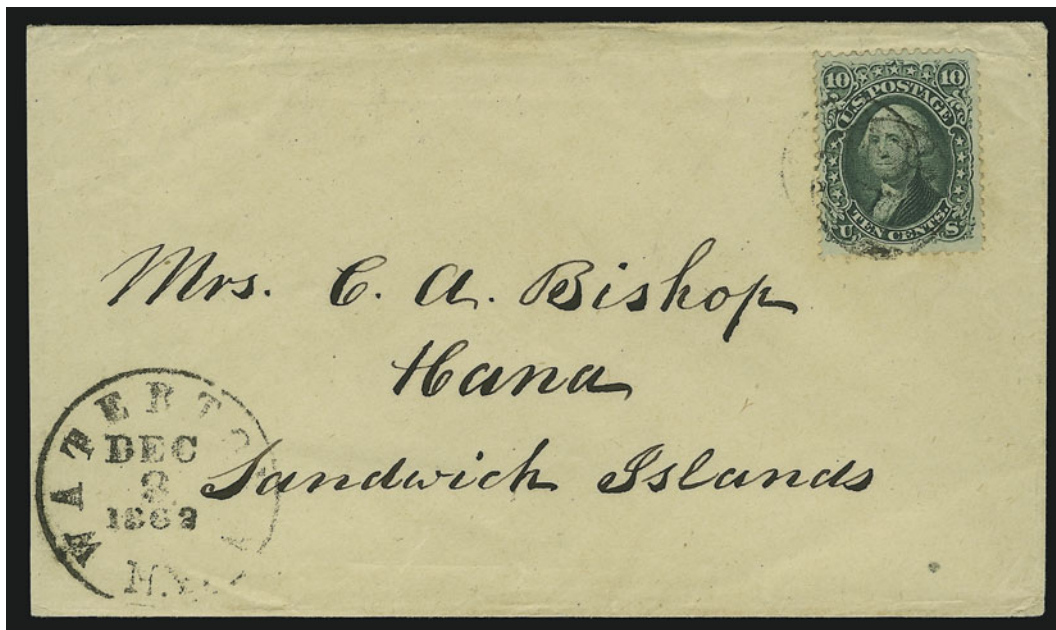 10 10
U.S. POSTAGE
TEN CENTS.
U S
Mrs. C. A. Bishop
Hana
Sandwich Islands
DEC
N.Y.